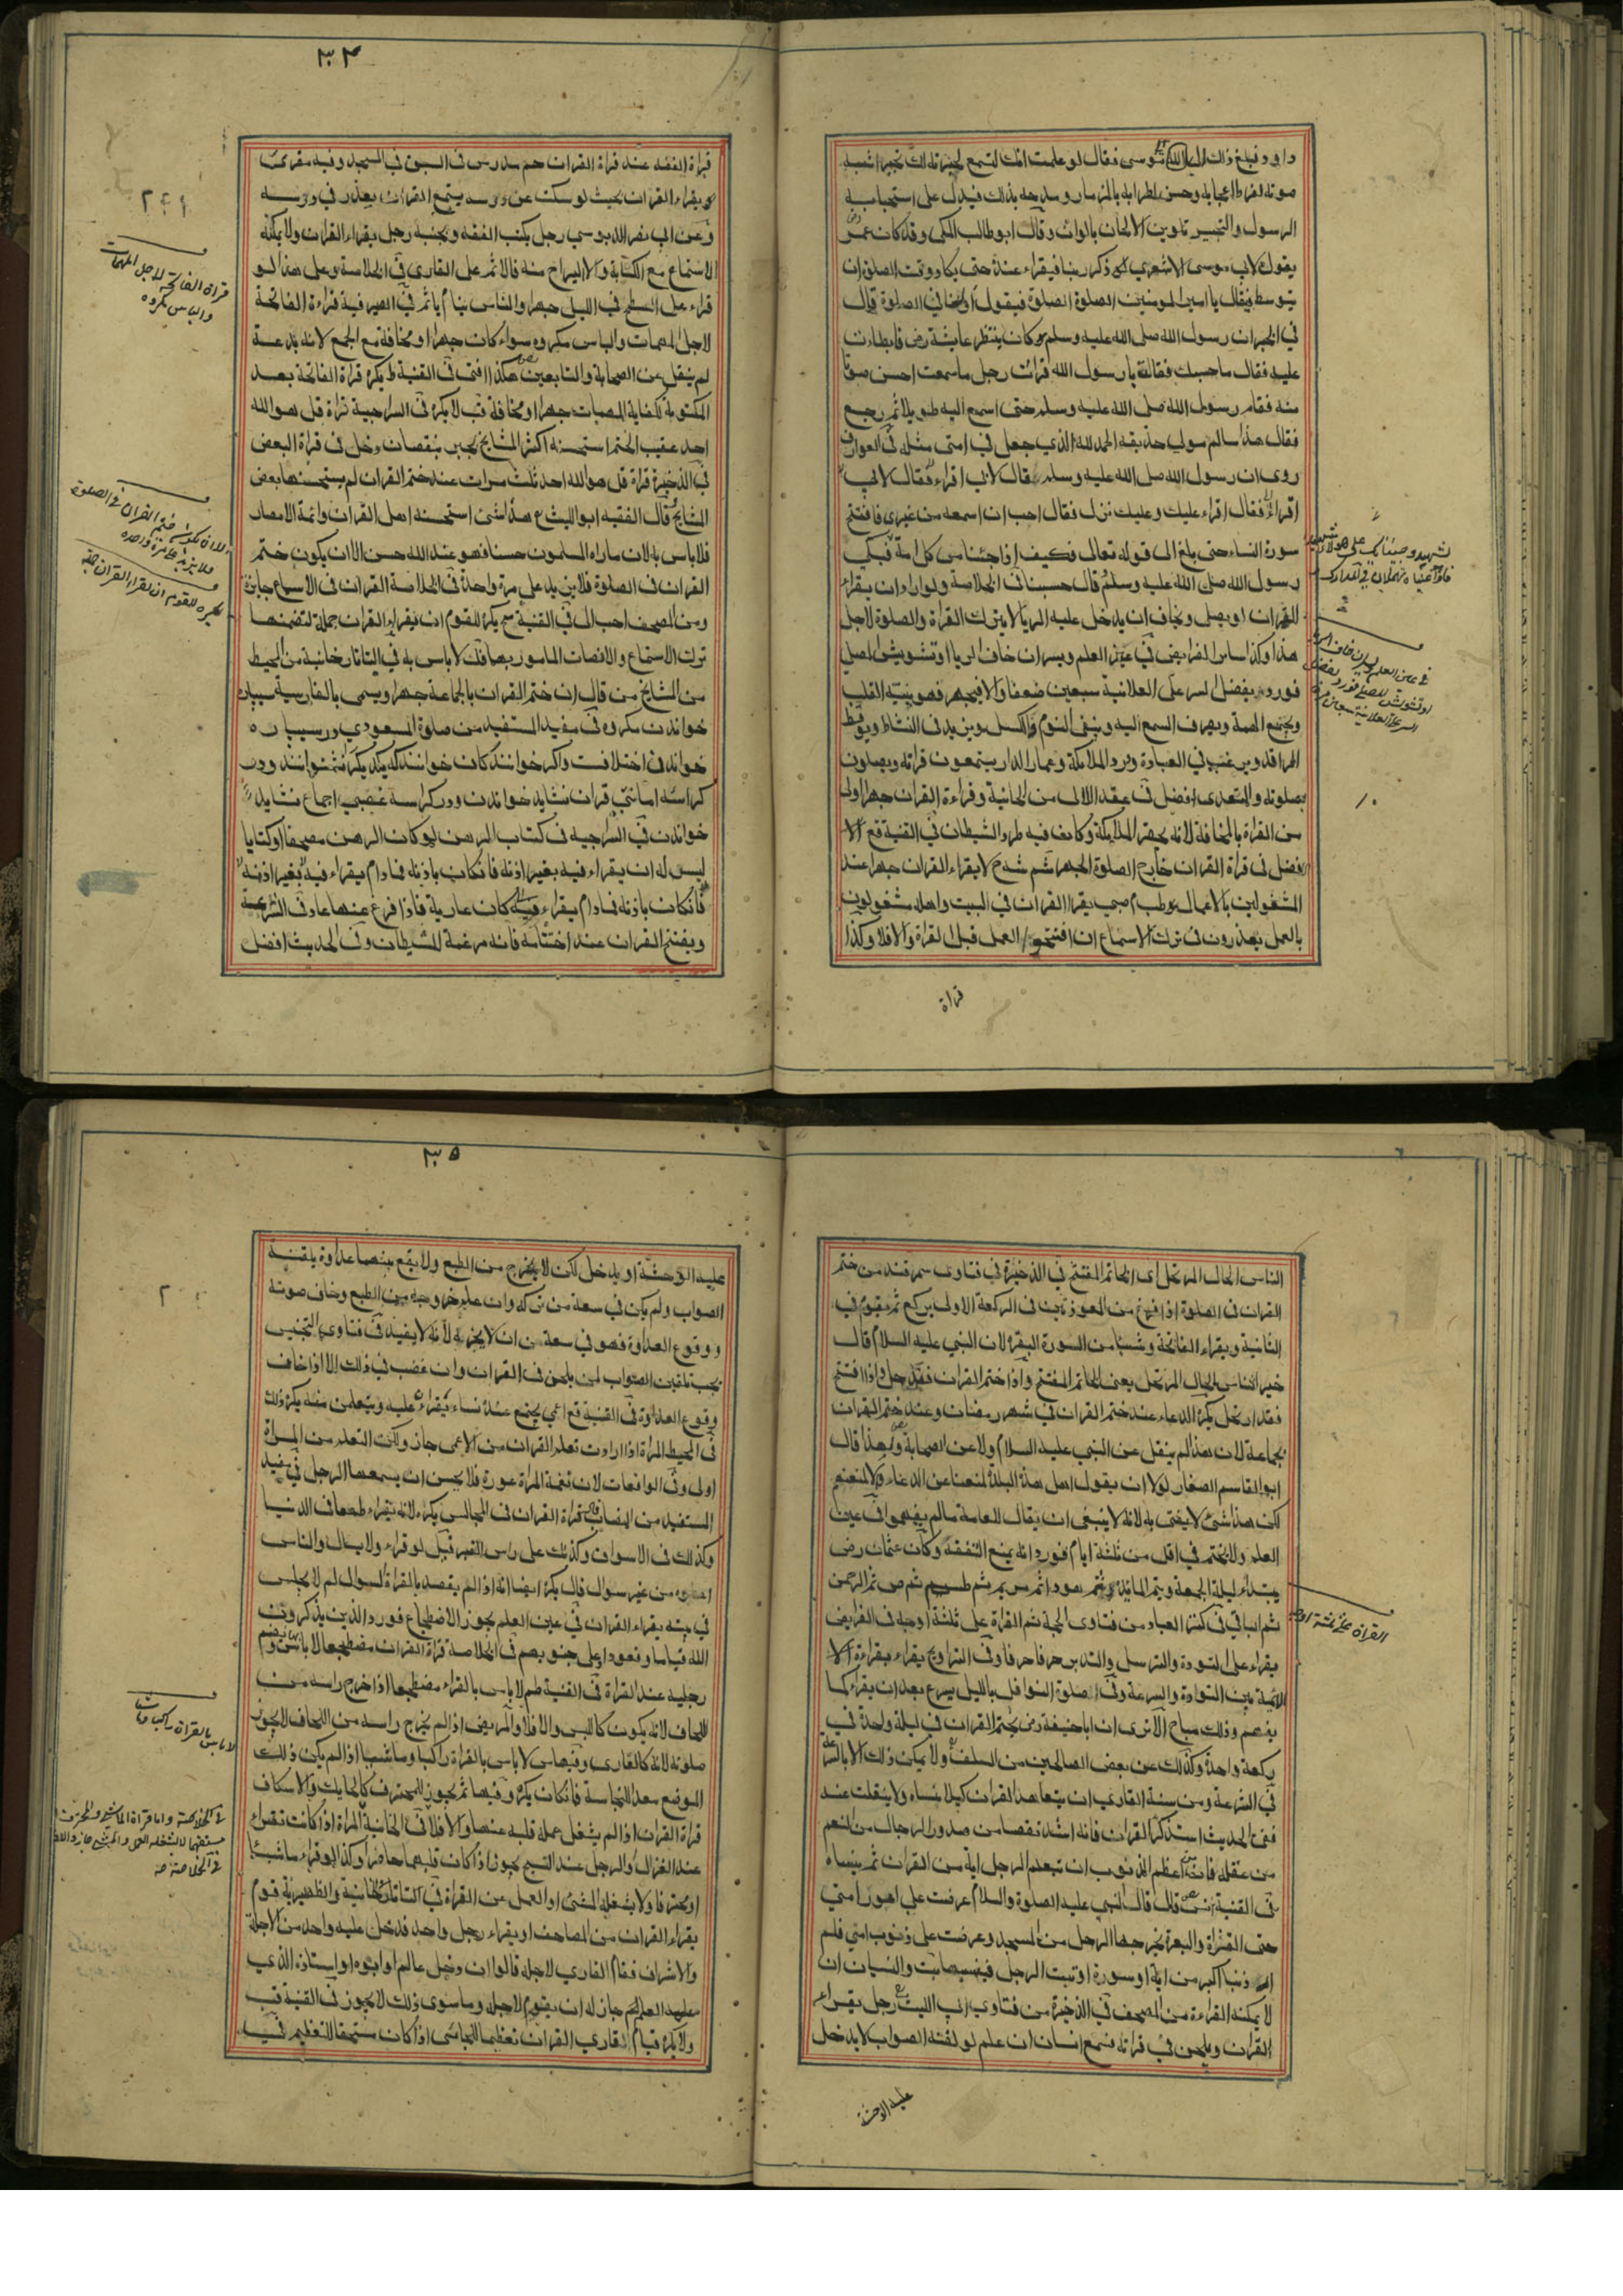 داود فبلغ ذلك الى موسى فقال لو علمت انك لتسمع لحبرته لك تحبيرا شبه
صوته لفرط اعجابه وحسن اطرابه بالمزمار ومدحه بذلك فيدل على استحبابه
الرسول والتحبير تلوين الالحان بالوان وقال ابو طالب المكى وقد كان عمر رض
يقول لابى موسى الاشعرى ذكر ربنا فيقراء عنده حتى يكاد وقت الصلوة ان
يتوسط فيقال يا امير المومنين الصلوة الصلوة فيقول اولسنا فى الصلوة قال
في الخبر ان رسول الله صلى الله عليه وسلم كان ينتظر عايشة رض فابطات
عليه فقال ما حبسك فقالت يا رسول الله قرات رجل ما سمعت احسن صوتا
منه فقام رسول الله صلى الله عليه وسلم حتى اسمع اليه طويلا ثم رجع
فقال هذا سالم مولى حذيفة الحمد لله الذي جعل في امتى مثله فى العوارف
روى ان رسول الله صلى الله عليه وسلم قال لابى اقراء فقال لابى
اقراء فقال اقراء عليك وعليك نزل فقال احب ان اسمعه من غيرى فافتتح
سورة النساء حتى بلغ الى قوله تعالى فكيف اذا جئنا من كل امة فبكى
رسول الله صلى الله عليه وسلم قال حسبنا فى الخلاصة ولو اراد ان يقراء
القران او يصلى ويخاف ان يدخل عليه الريا لا يترك القراة والصلوة لاجل
هذا وكذا ساير الفرايض فى عين العلم ويسر ان خاف الريا او تشويش المصلى
فورد يفضل السر على العلانية سبعين ضعفا والا فيجهر فهو ينبه القلب
ويجمع الهمة ويصرف السمع اليه وينفى النوم والكسل ويزيد فى النشاط ويوقظ
المراقد ويرغب في العبادة ويرد الملائكة وعمار الدار يستمعون قراته ويصلون
بصلوته والمتعدى افضل فى عقد اللالى من الخانية وقراءة القران جهرا اولى
من القراة بالمخافة لانه يحضر الملائكة وكان فيه طرد الشيطان فى القنية قع الا
فضل فى قراة القران خارج الصلوة الجهر شم شدح لا يقراء القران جهرا عند
المشغولين بالاعمال صبي يقرا القران في البيت واهله مشغولون
بالعمل يعذرون فى ترك الاسماع ان افتتحوا العمل قبل القراة والا فلا وكذا
قراة
١٠
٣٤
قراة الفقه عند قراة القران حم مدرس فى السبق فى المسجد وفيه مقرئ
يقراء القران بحيث لو سكت عن درسه يستمع القران يعذر فى درسه
وعن ابى نصر الدبوسي رجل يكتب الفقه وبجنبه رجل يقراء القران ولا يمكنه
الاستماع مع الكتابة والا البراح منه فالاثم على القارى فى الخلاصة وعلى هذا لو
قراء على السطح فى الليل جهرا والناس نيام ياثم فى الصيرفية قراءة الفاتحة
لاجل المهمات والباس مكروه سواء كان جهرا او مخافة مع الجمع لانه بدعة
لم ينقل عن الصحابة والتابعين هكذا افتى فى القنية ط يكره قراة الفاتحة بعد
المكتوبة لكفاية المهمات جهرا او مخافة قب لا يكره فى السراجية قراة قل هو الله
احد عقيب الختم استحسنه اكثر المشايخ لجبر نقصان دخل فى قراة البعض
فى الذخيرة قراة قل هو الله احد ثلث مرات عند ختم القران لم يستحسنها بعض
المشايخ قال الفقيه ابو الليث هذا شئ استحسنه اهل القران وائمة الامصار
فلا باس به لان ما راه المسلمون حسنا فهو عند الله حسن الا ان يكون ختم
القران فى الصلوة فلا يزيد على مرة واحدة فى الخلاصة القران فى الاسباع جايزة
ومن المصحف احب الى فى القنية يكره للقوم ان يقراء القران جملة لتضمنها
ترك الاستماع والانصات المامور بهما لا باس به في التاتارخانية من المحيط
من المشايخ من قال ان ختم القران بالجماعة جهرا ويسمى بالفارسية سيپاره
خواندن مكروه فى مفيد المستفيد من صلوة المسعودي در سيپاره
خواندن اختلافست واكر خوانند كان خوانند كه يكديكر را نشنوانند ودر
كراسه امانتى قران نشايد خواندن ودر كراسه غصبى اجماع نشايد
خواندن فى السراجيه فى كتاب الرهن لو كان الرهن مصحفا او كتابا
ليس له ان يقراء فيه بغير اذنه فان كان باذنه فمادام يقراء فيه بغير اذنه
فان كان باذنه فمادام يقراء فيه كان عارية فاذا فرغ عنها عاد فى الشرعية
ويفتتح القران عند اختتامه فانه مرغمة للشيطان وفى الحديث افضل
قراة الفاتحة لاجل المهمات
والباس مكروه
الا ان يكون ختم القران فى الصلوة
فلا يزيد على مرة واحدة
يكره للقوم ان يقرا القران جملة
٣٥
الناس الحال المرتحل اى الخاتم المفتتح فى الذخيرة فى فتاوى سمرقند من ختم
القران فى الصلوة اذا فرغ من المعوذتين فى الركعة الاولى يركع ثم يقوم فى
الثانية ويقراء الفاتحة وشيئا من السورة البقرة لان النبي عليه السلام قال
خير الناس الحال المرتحل يعنى الخاتم المفتتح واذا ختم القران فقد حل واذا افتتح
فقد ارتحل يكره الدعاء عند ختم القران في شهر رمضان وعند ختم القران
بجماعة لان هذا لم ينقل عن النبي عليه السلام ولا عن الصحابة ولهذا قال
ابو القاسم الصفار لولا ان يقول اهل هذه البلدة لمنعنا عن الدعاء والا لمنعتهم
لكن هذا شئ لا يفتى به لانه لا ينبغى ان يقال للعامة ما لم يفهموا فى عين
العلم ولا يختم في اقل من ثلثة ايام فورد انه يمنع التفقه وكان عثمان رض
يبتداء ليلة الجمعة ويتم المائدة ثم هود ثم مريم ثم طسم ثم ص ثم الرحمن
ثم الباقى فى كنز العباد من فتاوى الحجة ثم القراة على ثلثة اوجه فى الفرايض
يقراء على التودة والترسل والتدبر حرفا حرفا وفى التراويح يقراء بقراءة الا
ئمة بين التوادة والسرعة وفى صلوة النوافل بالليل يسرع بعد ان يقراء كما
يفهم وذلك مباح الا ترى ان ابا حنيفة رض يختم القران فى ليلة واحدة فى
ركعة واحدة وكذلك عن بعض الصالحين من السلف ولا يمكن ذلك الا بالسرعة
فى الشرعة ومن سنة القارى ان يتعاهد القران كيلا ينساه ولا ينفلت عنه
ففى الحديث استذكر القران فانه اشد تفصيا من صدور الرجال من النعم
من عقله فانه اعظم الذنوب ان يتعلم الرجل اية من القران ثم ينساه
فى القنية قال قال النبي عليه الصلوة والسلام عرضت على اجور امتي
حتى القذاة والبعرة يخرجها الرجل من المسجد وعرضت على ذنوب امتي فلم
ار ذنبا اكبر من اية او سورة اوتيت الرجل فنسيها ثبت والنسيان ان
لا يمكنه القراءة من المصحف فى الذخيرة من فتاوى ابى الليث رجل يقراء
القران ويلحن فى قراته فسمع انسان ان علم لو لقنه الصواب لا يدخل
عليه الوحشة
القراة على ثلثة اوجه
عليه الوحشة او يدخل لكن لا يخرج من الطبع ولا يقع بينهما عداوة يلقنه
الصواب ولم يكن فى سعة من تركه وان علم خروجه من الطبع وخاف صوته
ووقوع العداوة فهو فى سعة من ان لا يخبره لانه لا يفيد فى فتاوى التجنيس
يجب تلقين الصواب لمن يلحن فى القران وان غضب فى ذلك الا اذا خاف
وقوع العداوة فى القنية قع اعمى يجتمع عنده نساء يقراء عليه ويتعلمن منه يكره ذلك
فى المحيط المراة اذا ارادت تعلم القران من الاعمى جاز ولكن التعلم من المراة
اولى وفى الواقعات لان نغمة المراة عورة فلا يحسن ان يسمعها الرجل فى مفيد
المستفيد من النصاب قراة القران فى المجالس يكره لانه يقراء طمعا فى الدنيا
وكذلك فى الاسواق وكذلك على راس القبر قيل لو قراء ولا يسال والناس
اعطوه من غير سوال قال يكره ايضا انه اذا لم يقصد بالقراة السوال لم لا يجلس
فى بيته يقراء القران فى عين العلم يجوز الاضطجاع فورد الذين يذكرون
الله قياما وقعودا وعلى جنوبهم فى الخلاصة قراة القران مضطجعا لا باس ويضم
رجليه عند القراة فى القنية طم لا باس بالقراء مضطجعا اذا اخرج راسه من
اللحاف لانه يكون كاللبس والا فلا والمريض اذا لم يخرج راسه من اللحاف لا يجوز
صلوته لانه كالعارى وفيها لا باس بالقراة راكبا وماشيا اذا لم يكن ذلك
الموضع معد للنجاسة فان كان يكره وفيها ثم يجوز للمحترف كالحايك والاسكاف
قراة القران اذا لم يشغل عمله قلبه عنها والا فلا فى الخانية المراة اذا كانت تقراء
عند الغزل والرجل عند النسج يجوز اذا كان قلبهما حاضرا وكذا لو قراء ماشيا
او محترفا ولا يشغله المشى او العمل عن القراة فى التاتارخانية والظهيرية قوم
يقراء القران من المصاحف او يقراء رجل واحد فدخل عليه واحد من الاجلة
والاشراف فقام القارى لاجله قالوا ان دخل عالم او ابوه او استاذه الذى
علمه العلم جاز له ان يقوم لاجله وما سوى ذلك لا يجوز فى القنية قب
ولا يكره قيام القارى القران تعظيما للجائى اذا كان مستحقا للتعظيم
لا باس بالقراة راكبا وماشيا